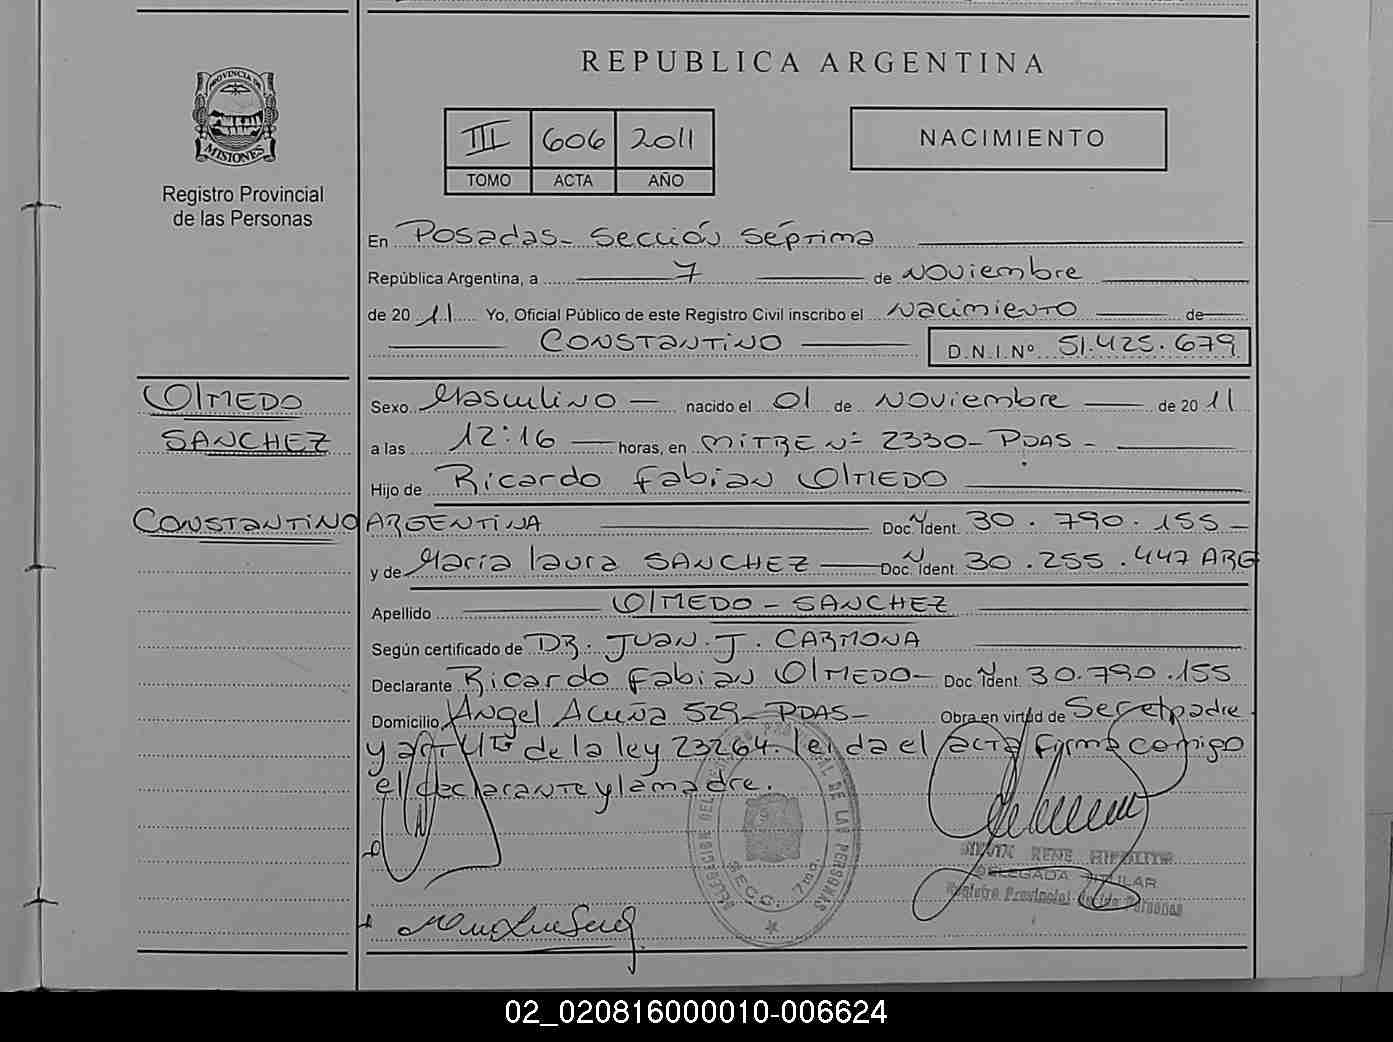 REPUBLICA ARGENTINA
PROVINCIA DE
MISIONES
Registro Provincial
de las Personas
III 606 2011
TOMO ACTA AÑO
NACIMIENTO
En Posadas - Sección Séptima
República Argentina, a 7 de Noviembre
de 2011 Yo, Oficial Público de este Registro Civil inscribo el Nacimiento de
CONSTANTINO D.N.I.Nº 51.425.679
OLMEDO
SANCHEZ
CONSTANTINO
Sexo Masculino nacido el 01 de Noviembre de 2011
a las 12:16 horas, en MITRE Nº 2330 - PDAS -
Hijo de Ricardo Fabian OLMEDO
ARGENTINA Doc. Ident. Nº 30.790.155 -
y de Maria Laura SANCHEZ Doc. Ident. Nº 30.255.447 ARG
Apellido OLMEDO - SANCHEZ
Según certificado de DR. JUAN. J. CARMONA
Declarante Ricardo Fabian OLMEDO - Doc. Ident. Nº 30.790.155
Domicilio Angel Acuña 529 - PDAS - Obra en virtud de Ser el padre
y art 4to de la ley 23264. leida el acta firma comigo
el declarante y la madre.
SECC. 7ma
RENE HIPOLITO
DELEGADA TITULAR
Registro Provincial de las Personas
02_020816000010-006624